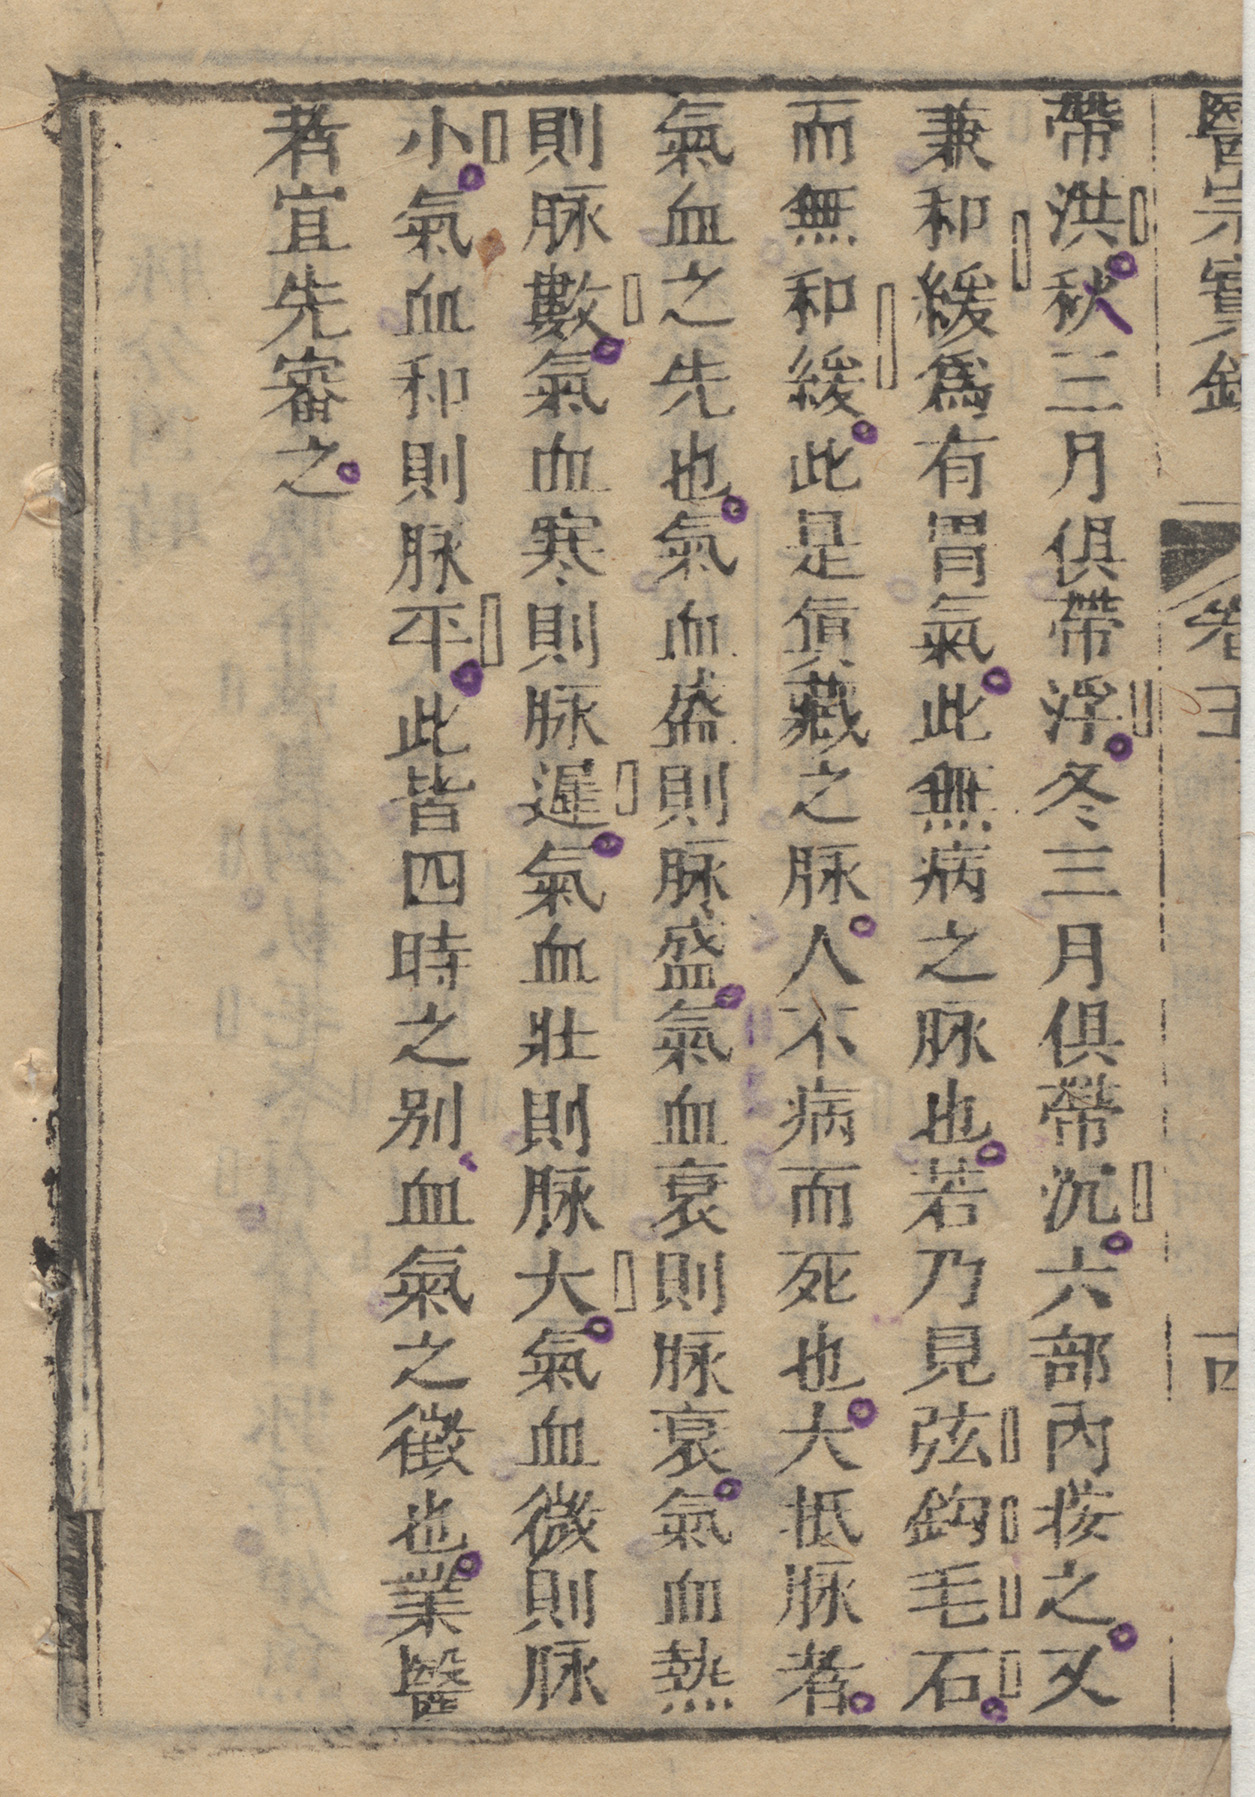 醫宗寳鈔 卷五 十四
帶洪秋三月俱帶浮冬三月俱帶沉六部內按之又
兼和緩爲有胃氣此無病之脉也若乃見弦鈎毛石
而無和緩此是眞藏之脉人不病而死也大抵脉者
氣血之先也氣血盛則脉盛氣血衰則脉衰氣血熱
則脉數氣血寒則脉遲氣血壯則脉大氣血微則脉
小氣血和則脉平此皆四時之别血氣之徵也業醫
者宜先審之